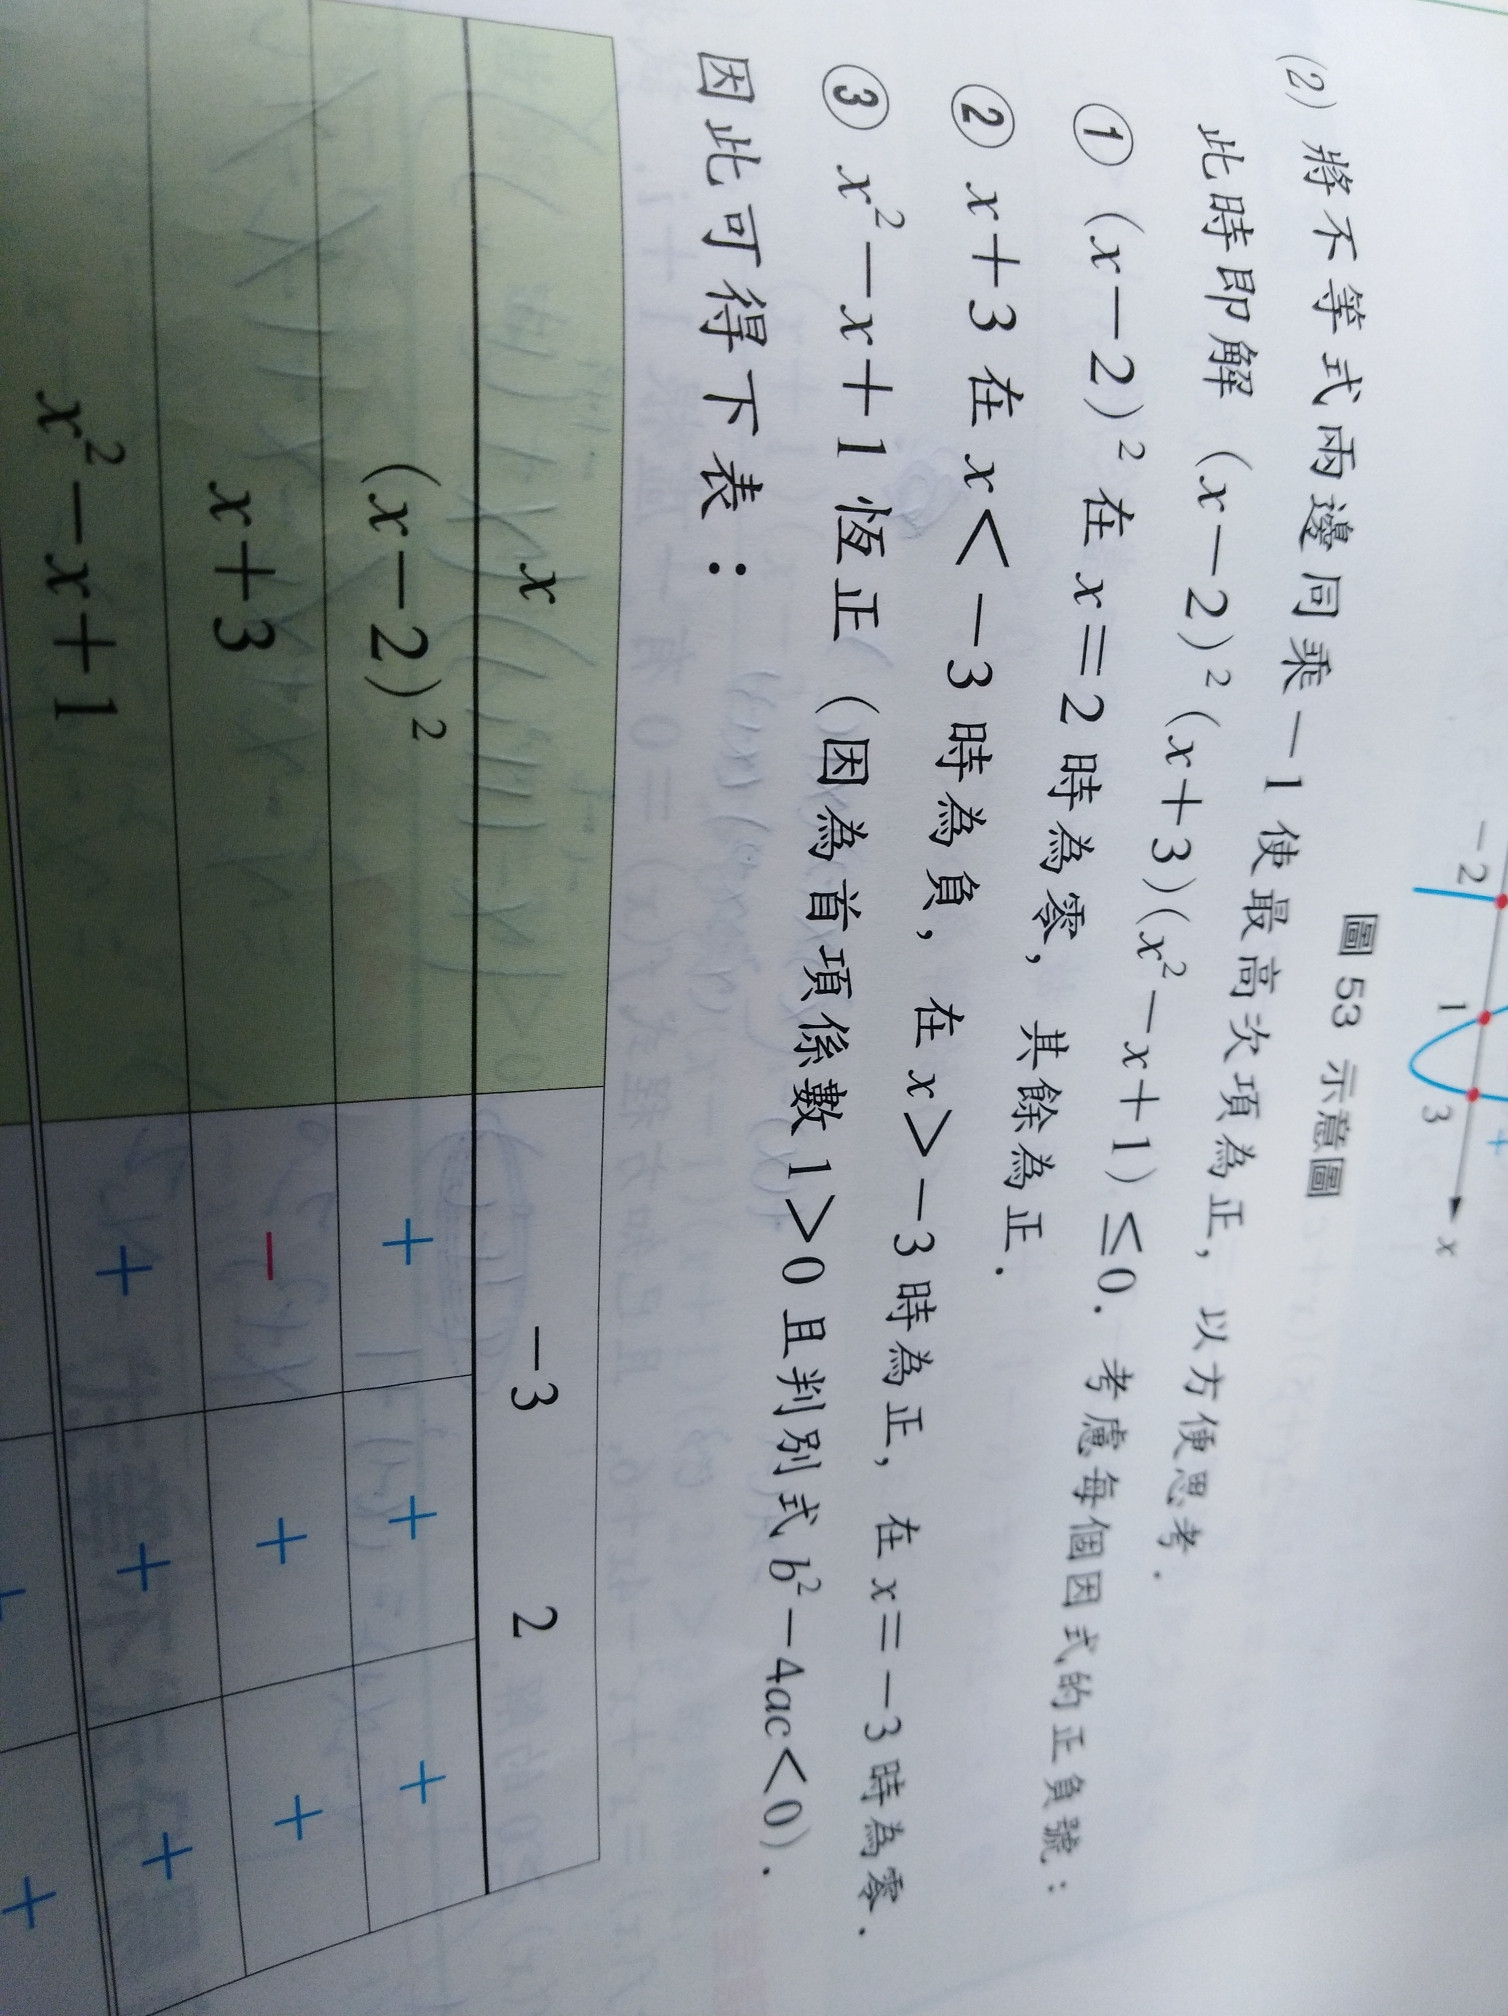 -2 1 3 x
+
圖 53 示意圖
(2) 將不等式兩邊同乘 -1 使最高次項為正，以方便思考．
此時即解 (x-2)²(x+3)(x²-x+1)≤0．考慮每個因式的正負號：
① (x-2)² 在 x=2 時為零，其餘為正．
② x+3 在 x<-3 時為負，在 x>-3 時為正，在 x=-3 時為零．
③ x²-x+1 恆正（因為首項係數 1>0 且判別式 b²-4ac<0）．
因此可得下表：
x -3 2
(x-2)² + + +
x+3 - + +
x²-x+1 + + +
+ +